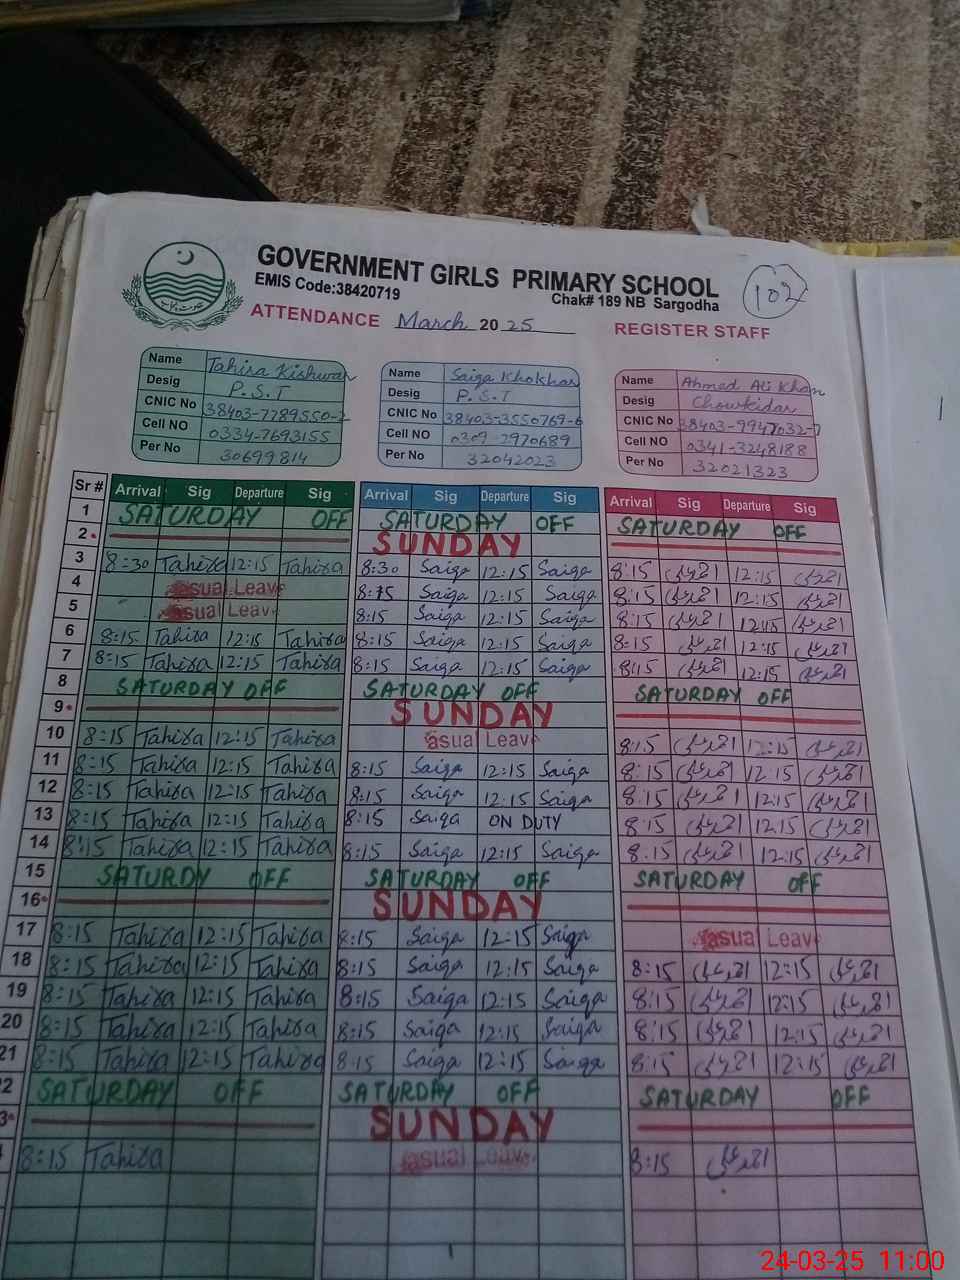 GOVERNMENT GIRLS PRIMARY SCHOOL
EMIS Code:38420719 Chak# 189 NB Sargodha
102
ATTENDANCE March 2025 REGISTER STAFF
Name Tahira Kishwar Name Saiqa Khokhar Name Ahmed Ali Khan
Desig P.S.T Desig P.S.T Desig Chowkidar
CNIC No 38403-7789550-2 CNIC No 38403-3550769-6 CNIC No 38403-9947032-7
Cell NO 0334-7693155 Cell NO 0309-2970689 Cell NO 0341-3248188
Per No 30699814 Per No 32042023 Per No 32021323
Sr # Arrival Sig Departure Sig Arrival Sig Departure Sig Arrival Sig Departure Sig
1 SATURDAY OFF SATURDAY OFF SATURDAY OFF
2 SUNDAY
3 8:30 Tahira 12:15 Tahira 8:30 Saiqa 12:15 Saiqa 8:15 احمد علی 12:15 احمد علی
4 asual Leave 8:15 Saiqa 12:15 Saiqa 8:15 احمد علی 12:15 احمد علی
5 asual Leave 8:15 Saiqa 12:15 Saiqa 8:15 احمد علی 12:15 احمد علی
6 8:15 Tahira 12:15 Tahira 8:15 Saiqa 12:15 Saiqa 8:15 احمد علی 12:15 احمد علی
7 8:15 Tahira 12:15 Tahira 8:15 Saiqa 12:15 Saiqa 8:15 احمد علی 12:15 احمد علی
8 SATURDAY OFF SATURDAY OFF SATURDAY OFF
9 SUNDAY
10 8:15 Tahira 12:15 Tahira asual Leave 8:15 احمد علی 12:15 احمد علی
11 8:15 Tahira 12:15 Tahira 8:15 Saiqa 12:15 Saiqa 8:15 احمد علی 12:15 احمد علی
12 8:15 Tahira 12:15 Tahira 8:15 Saiqa 12:15 Saiqa 8:15 احمد علی 12:15 احمد علی
13 8:15 Tahira 12:15 Tahira 8:15 Saiqa ON DUTY 8:15 احمد علی 12:15 احمد علی
14 8:15 Tahira 12:15 Tahira 8:15 Saiqa 12:15 Saiqa 8:15 احمد علی 12:15 احمد علی
15 SATURDY OFF SATURDAY OFF SATURDAY OFF
16 SUNDAY
17 8:15 Tahira 12:15 Tahira 8:15 Saiqa 12:15 Saiqa asual Leave
18 8:15 Tahira 12:15 Tahira 8:15 Saiqa 12:15 Saiqa 8:15 احمد علی 12:15 احمد علی
19 8:15 Tahira 12:15 Tahira 8:15 Saiqa 12:15 Saiqa 8:15 احمد علی 12:15 احمد علی
20 8:15 Tahira 12:15 Tahira 8:15 Saiqa 12:15 Saiqa 8:15 احمد علی 12:15 احمد علی
21 8:15 Tahira 12:15 Tahira 8:15 Saiqa 12:15 Saiqa 8:15 احمد علی 12:15 احمد علی
2 SATURDAY OFF SATURDAY OFF SATURDAY OFF
3 SUNDAY
8:15 Tahira asual Leave 8:15 احمد علی
24-03-25 11:00